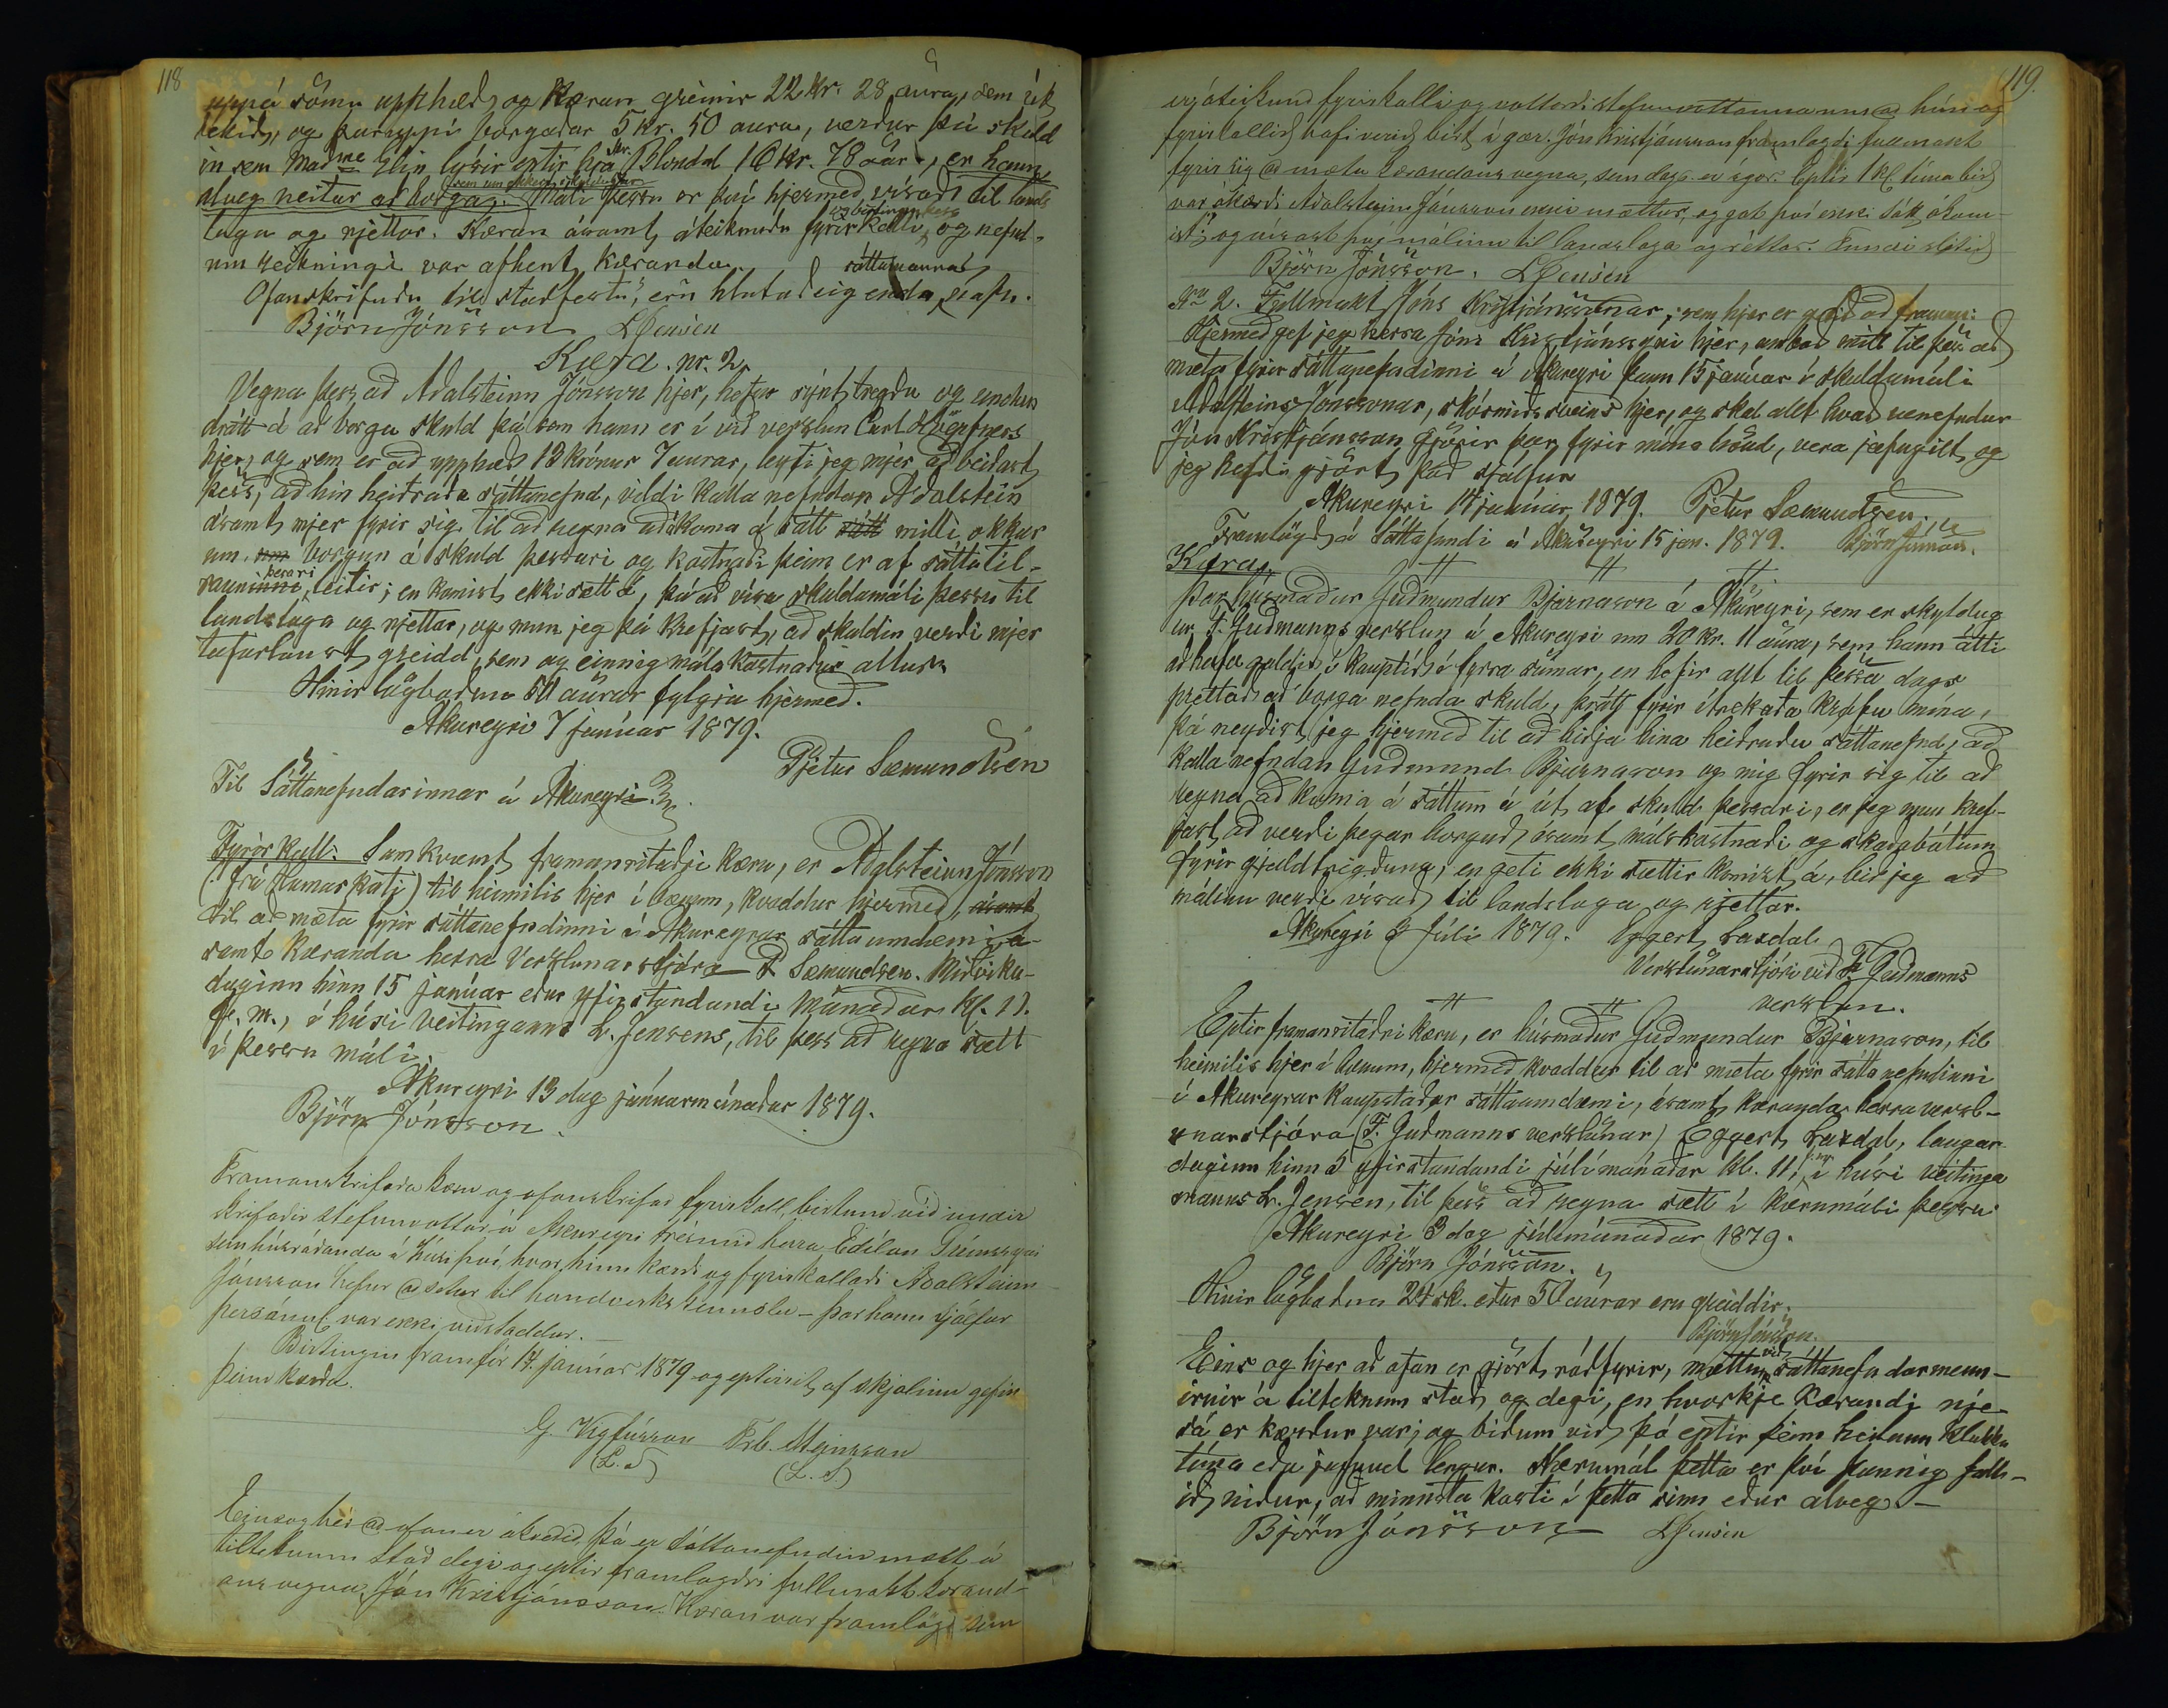 118
uppá sömu upphæð og Kæran greinir 22 Kr. 28 aura, sem rjett
tekið, og þaruppí borgaðar 5 Kr. 50 aura, verður þá skuld
in sem Madme Elin lýsir eptir hjá Hr. Blöndal 16 Kr. 78 aúr., er hann
alveg neitar að borga. Máli þessu er því hjermeð vísað til lands
sem um okkurs skuldir
laga og rjettar. Kæran ásamt áteiknuðu fyrirkalli og birtingu þess og nefnd-
um reikningi var afhent Kæranda.
Ofanskrifuðu til staðfestu, eru hlutaðeigenda sáttamanna nöfn.
Björn Jónsson LJensen
Kæra. nr. 2.
Vegna þess að Aðalsteinn Jónsson hjer, hefur sýnt tregðu og undan
drátt á að borga skuld þá sem hann er í við verslun Carl Höepfners
hjer, og sem er að upphæð 13 krónur 7 aurar, leyfi jeg mjer að beiðast
þess, að hin heiðraða sáttanefnd, vildi kalla nefndan Aðalstein
ásamt mjer fyrir sig til að reyna að koma á sátt sátt milli okkur
um um borgun á skuld þessari og kostnaði þeim er af sáttatil-
rauninni þessari leiðir; en komist ekki sætt á, þá að vísa skuldamáli þessu til
landslaga og rjettar, og mun jeg þá krefjast, að skuldin verði mjer
tafarlaust greidd, sem og einnig máls kostnaður allur.
Hinir lögboðnu 50 aúrar fylgja hjermeð.
Akureyri 7 janúar 1879.
Pjetur Sæmundsen
Til Sáttanefndarinnar á Akureyri.
Fyrirkall: Samkvæmt framanritaðri Kæru, er Aðalsteinn Jónsson
(frá Hamarkoti) til heimilis hjer í bænum, kvaddur hjermeð, ásamt
til að mæta fyrir sáttanefndinni í Akureyrar sáttaumdæmi, á-
samt Kæranda herra Verslunarstjóra P Sæmundsen. Miðviku-
daginn hinn 15 janúar eður yfirstandandi mánaðar kl. 11.
f. m., í húsi veitingamanns L. Jensens, til þess að reyna sætt
í þessu máli.
Akureyri 13 dag janúarmánaðar 1879.
Björn Jónsson.
Framanskrifaða kæru og ofanskrifað fyrirkall, birtum við undir
skrifaðir stefnuvottar á Akureyri trésmið herra Edílon Grímssyni
sem húsráðanda í húsi því, hvar hinn kærði og fyrirkallaði Aðalsteinn
Jónsson hefur aðsetur til handverks kennslu – þar hann sjálfur
persónul. var ekki viðstaddur.
Birtingin framfór 14. janúar 1879 og eptirrit af skjalinu gefin
þeim kærða.
G. Vigfússon Frb. Steinsson
(L. S.) (L. S.)
Eins og hér að ofan er ákveðið, þá er sáttanefndin mætt á
tilteknum stað degi og eptir framlagðri fullmakt kærand-
ans vegna, Jón Kristjánsson. Kæran var framlögð sem
119.
og áteiknuð fyrirkalli og vottorði stefnuvottanna um að hún og
fyrirkallið hafi verið birt í gær. Jón Kristjánsson framlagði fullmakt
fyrir sig að mæta kærandans vegna, sem dags. er ígær. Eptir 1 kl. tíma bið
var ákærði Aðalsteinn Jónsson ekki mættur, og gat því ekki sátt ákom-
ist, og vísast því málinu til landslaga og réttar. Fundi slitið
Björn Jónsson. LJensen
No 2. Fullmakt Jóns Kristjánssonar, sem hjer er getið að framan:
Hjermeð gef jeg herra Jóni Kristjánssyni hjer, umboð mitt til þess að
mæta fyrir sáttanefndinni á Akureyri þann 15 janúar í skuldamáli
Aðalsteins Jónssonar, skósmiðssveins hjer, og skal allt hvað venefndur
Jón Kristjánsson gjörir þar fyrir mína hönd, vera jafngilt og
jeg hefði gjört það sjálfur
Akureyri 14 janúar 1879. Pjetur Sæmundsen.
Framlögð á sáttafundi á Akureyri 15 jan. 1879. Björn Jónsson.
Kæra.
Þar húsmaður Guðmundur Bjarnason á Akureyri, sem er skyldug
ur F. Guðmanns verslun á Akureyri um 20 kr. 11 aúra, sem hann átti
að hafa goldið í kauptíð í fyrra súmar, en hefir allt til þessa dags
prettað að borga nefnda skuld, þrátt fyrir ítrekaða kröfu mína,
þá neyðist jeg hjermeð til að biðja hina heiðruðu sáttanefnd, að
kalla nefndan Guðmund Bjarnason og mig fyrir sig til að
reyna að koma á sáttum á út af skuld þessari, er jeg mun kref-
jast að verði þegar borguð, ásamt málskostnaði og skaðabótum
fyrir gjaldtregðuna, en geti ekki sættir komist á, bið jeg að
málinu verði vísað til landslaga og rjettar.
Akureyri 2 Júlí 1879. Eggert Laxdal
Verslúnarstjóri við F. Guðmanns
verslun.
Eptir framanritaðri Kæru, er húsmaður Guðmundur Bjarnason, til
heimilis hjer í bænum, hjermeð kvaddur til að mæta fyrir sáttanefndinni
í Akureyrar Kaupstaðar sáttaumdæmi, ásamt Kæranda herra versl-
unarstjóra (F. Guðmanns verslúnar) Eggert Laxdal, laugar
daginn hinn 5 yfirstandandi júlímánaðar kl. 11, f.m. í húsi veitinga
manns L. Jensen, til þess að reyna sætt í kærumáli þessu
Akureyri 3 dag júlímánaðar 1879.
Björn Jónsson.
Hinir lögboðnu 24 sk. eður 50 aúrar eru greiddir.
Björn Jónsson.
Eins og hjer að ofan er gjört ráðfyrir, mættum við sáttanefndarmenn-
irnir á tilteknum stað og degi, en hvorkje Kærandi nje
sá er kærður var; og biðum við þó eptir þeim heilann klukku
tíma eða jafnvel lengur. Kærumál þetta er því þannig fall-
ið niður, að minnsta kosti í þetta sinn eður alveg. –
Björn Jónsson LJensen